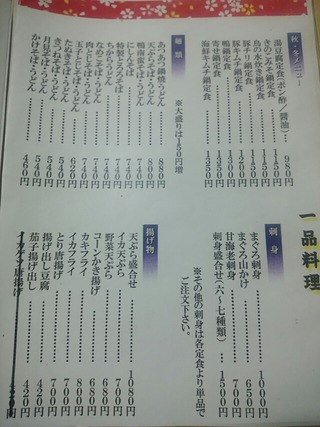 秋・冬メニュー
湯豆腐定食(ポン酢/醤油)…980円
きのこみそ鍋定食…1150円
鳥の水炊き鍋定食…1150円
豚チリ鍋定食…1150円
豚キムチ鍋定食…1200円
鴨鍋定食…1350円
寄せ鍋定食…1350円
海鮮キムチ鍋定食…1350円
麺類 ※大盛りは150円増
あつあつ鍋焼うどん…880円
天ぷらそば・うどん…880円
鴨南蛮そば・うどん…740円
にしんそば…740円
特製とろろそば…740円
ちからうどん…740円
肉とじそば・うどん…740円
なめこそば・うどん…740円
玉子とじそば・うどん…620円
たぬきそば・うどん…540円
きつねそば・うどん…540円
月見そば・うどん…540円
かけそば・うどん…460円
一品料理
刺身
まぐろ刺身…1000円
まぐろ山かけ…650円
甘海老刺身…700円
刺身盛合せ(六〜七種類)…1500円
※その他の刺身は各定食より単品で
ご注文下さい。
揚げ物
天ぷら盛合せ…1080円
イカ天ぷら…700円
野菜天ぷら…680円
コーンかき揚げ…680円
カキフライ…800円
イカフライ…700円
とり唐揚げ…700円
揚げ出し豆腐…420円
茄子揚げ出し…420円
イカゲソ唐揚げ